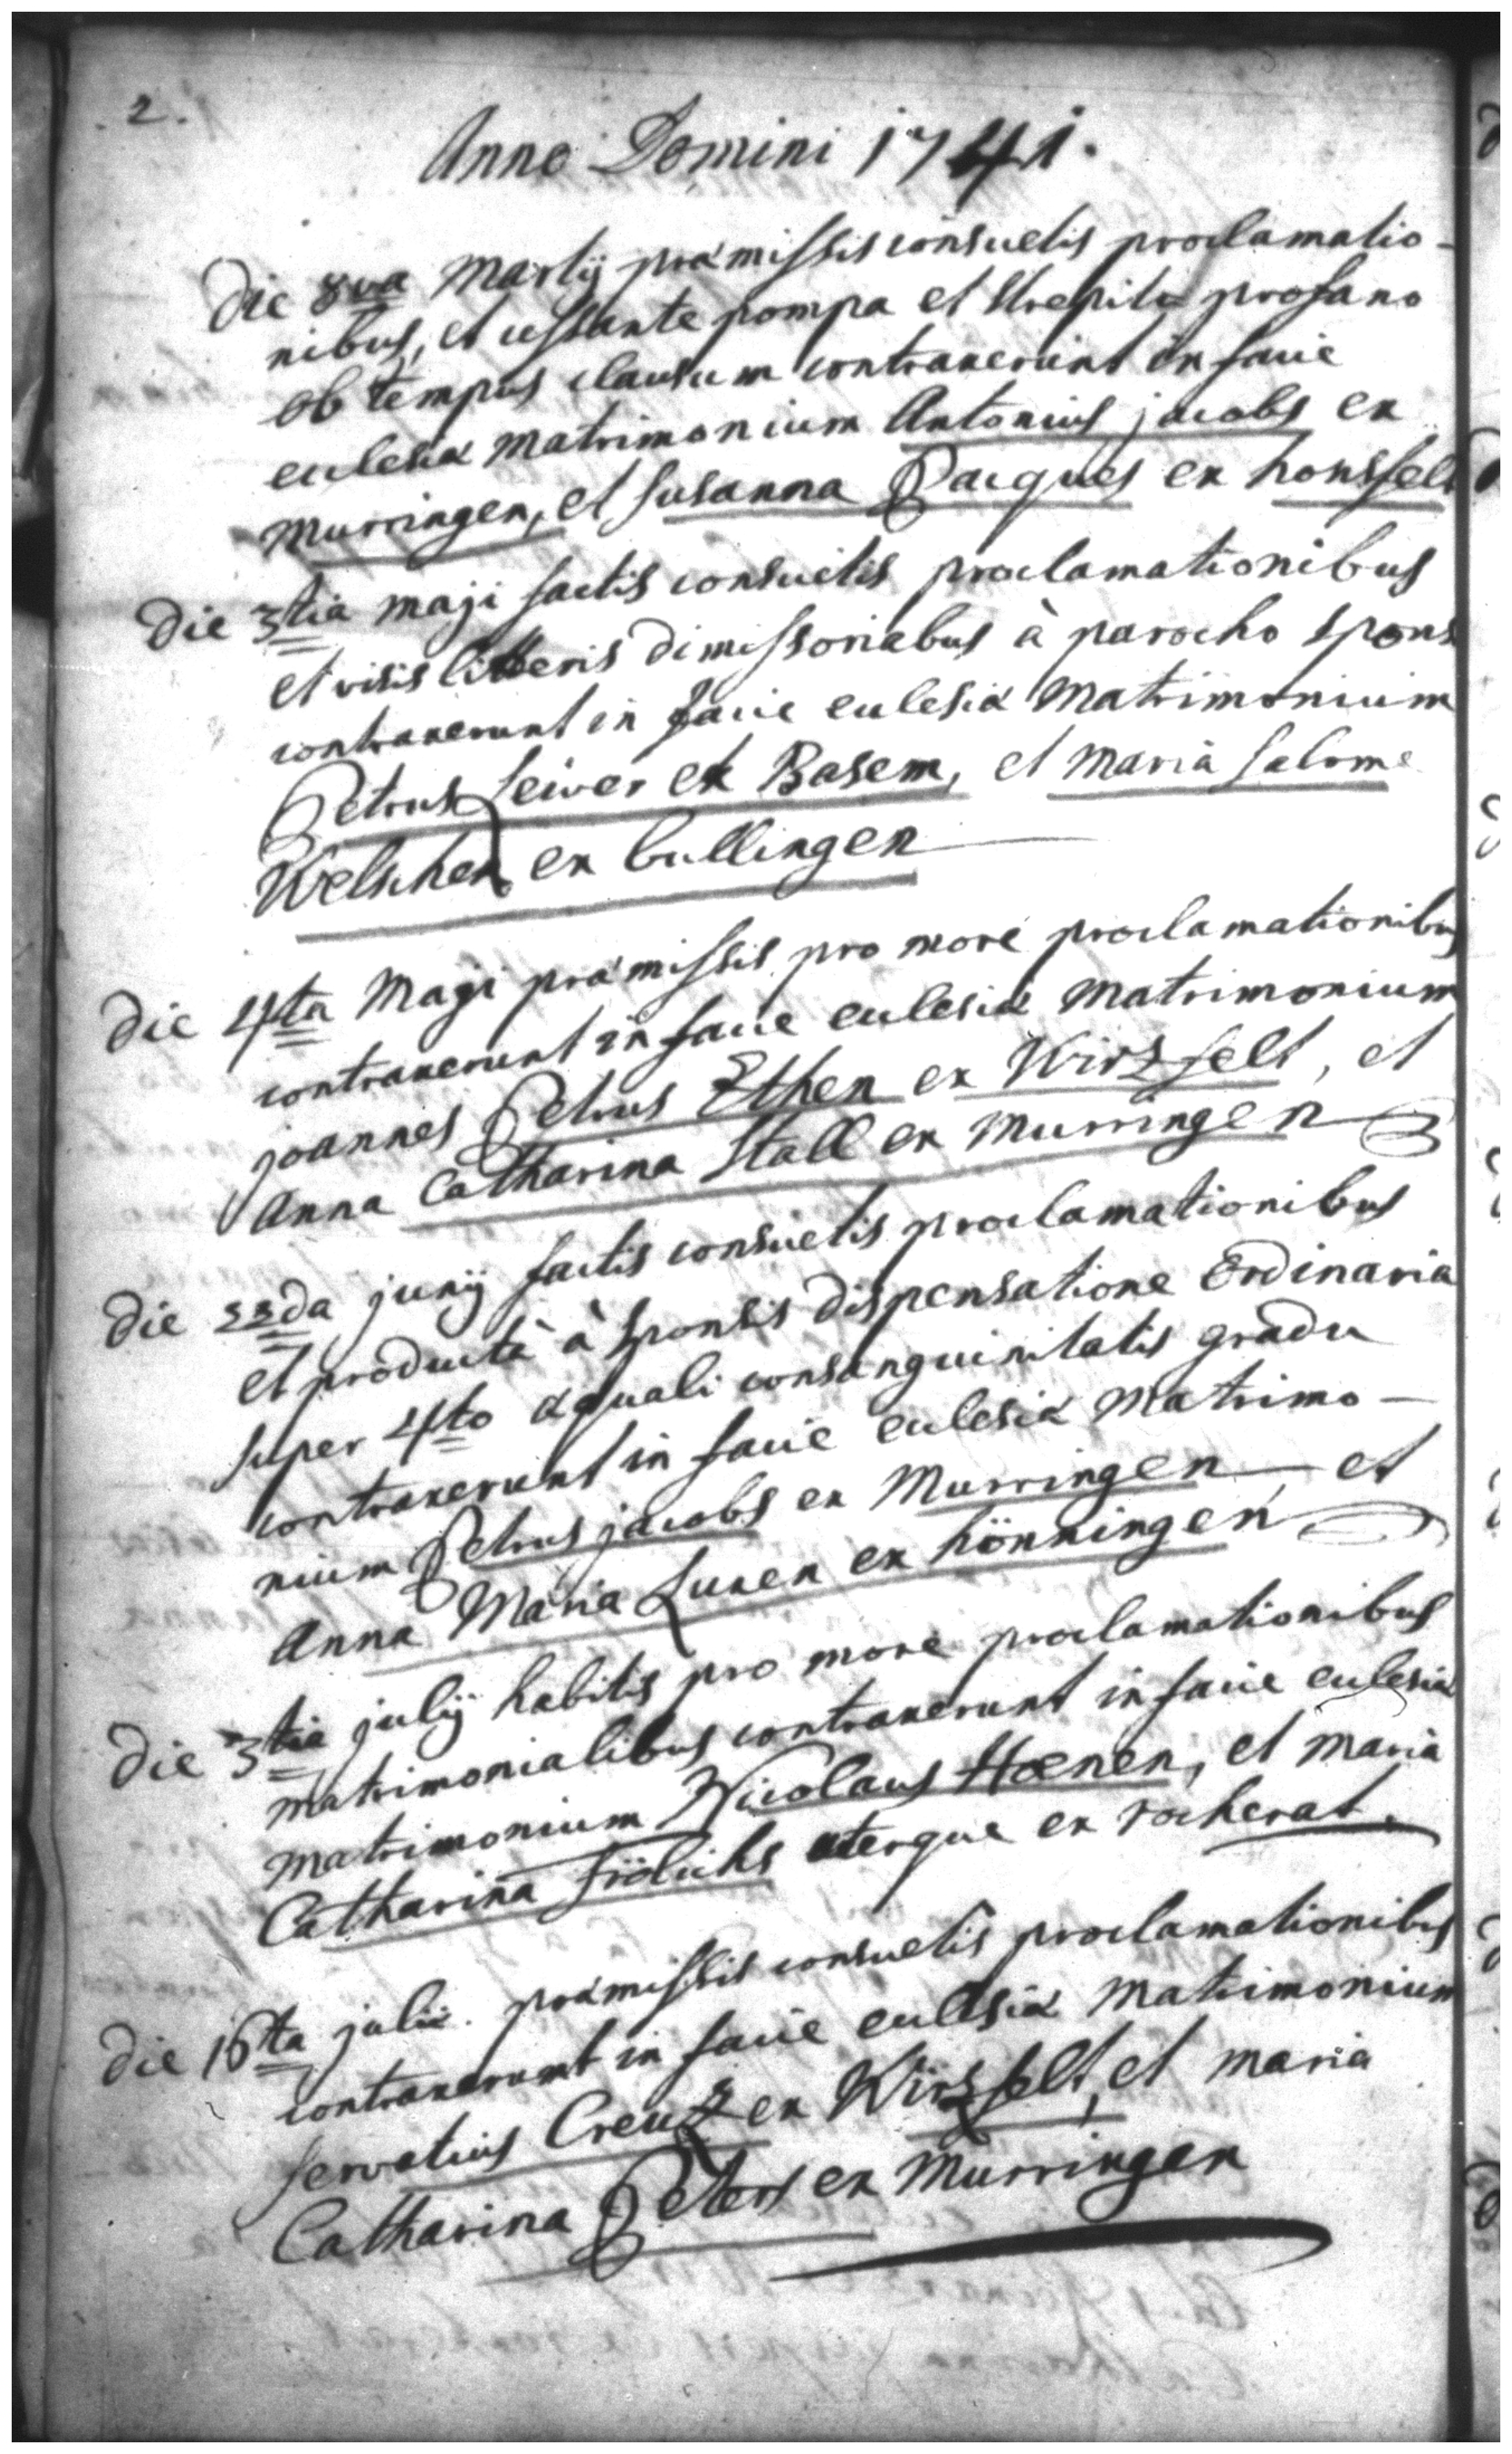 .2.
Anno Domini 1741.
Die 8va Martij præmissis consuetis proclamatio-
nibus, et cessante pompa et strepitu profano
ob tempus clausum contraxerunt in facie
ecclesiæ matrimonium Antonius jacobs ex
Murringen, et Susanna Pacques ex honsfelt
Die 3tia maji factis consuetis proclamationibus
et visis litteris dimissoriabus à parocho spons
contraxerunt in facie ecclesiæ Matrimonium
Petrus Seiver ex Basem, et maria Salome
Welschen ex bullingen
Die 4ta Maji præmissis pro more proclamationibus
contraxerunt in facie ecclesiæ Matrimonium
joannes Petrus Ethen ex Wirzfelt, et
Anna Catharina Stall ex Murringen
Die 22da junij factis consuetis proclamationibus
et productâ à sponsis dispensatione Ordinaria
super 4to æquali consanguinitatis gradu
contraxerunt in facie ecclesiæ Matrimo-
nium Petrus jacobs ex Murringen et
Anna Maria Luxen ex hönningen
Die 3tia julij habitis pro more proclamationibus
matrimonialibus contraxerunt in facie ecclesiæ
matrimonium Nicolaus Hoenen, et maria
Catharina frölichs uterque ex rocherat.
Die 16ta julii præmissis consuetis proclamationibus
contraxerunt in facie ecclesiæ Matrimonium
Servatius Creuz ex Wirzfelt, et maria
Catharina Peters ex Murringen